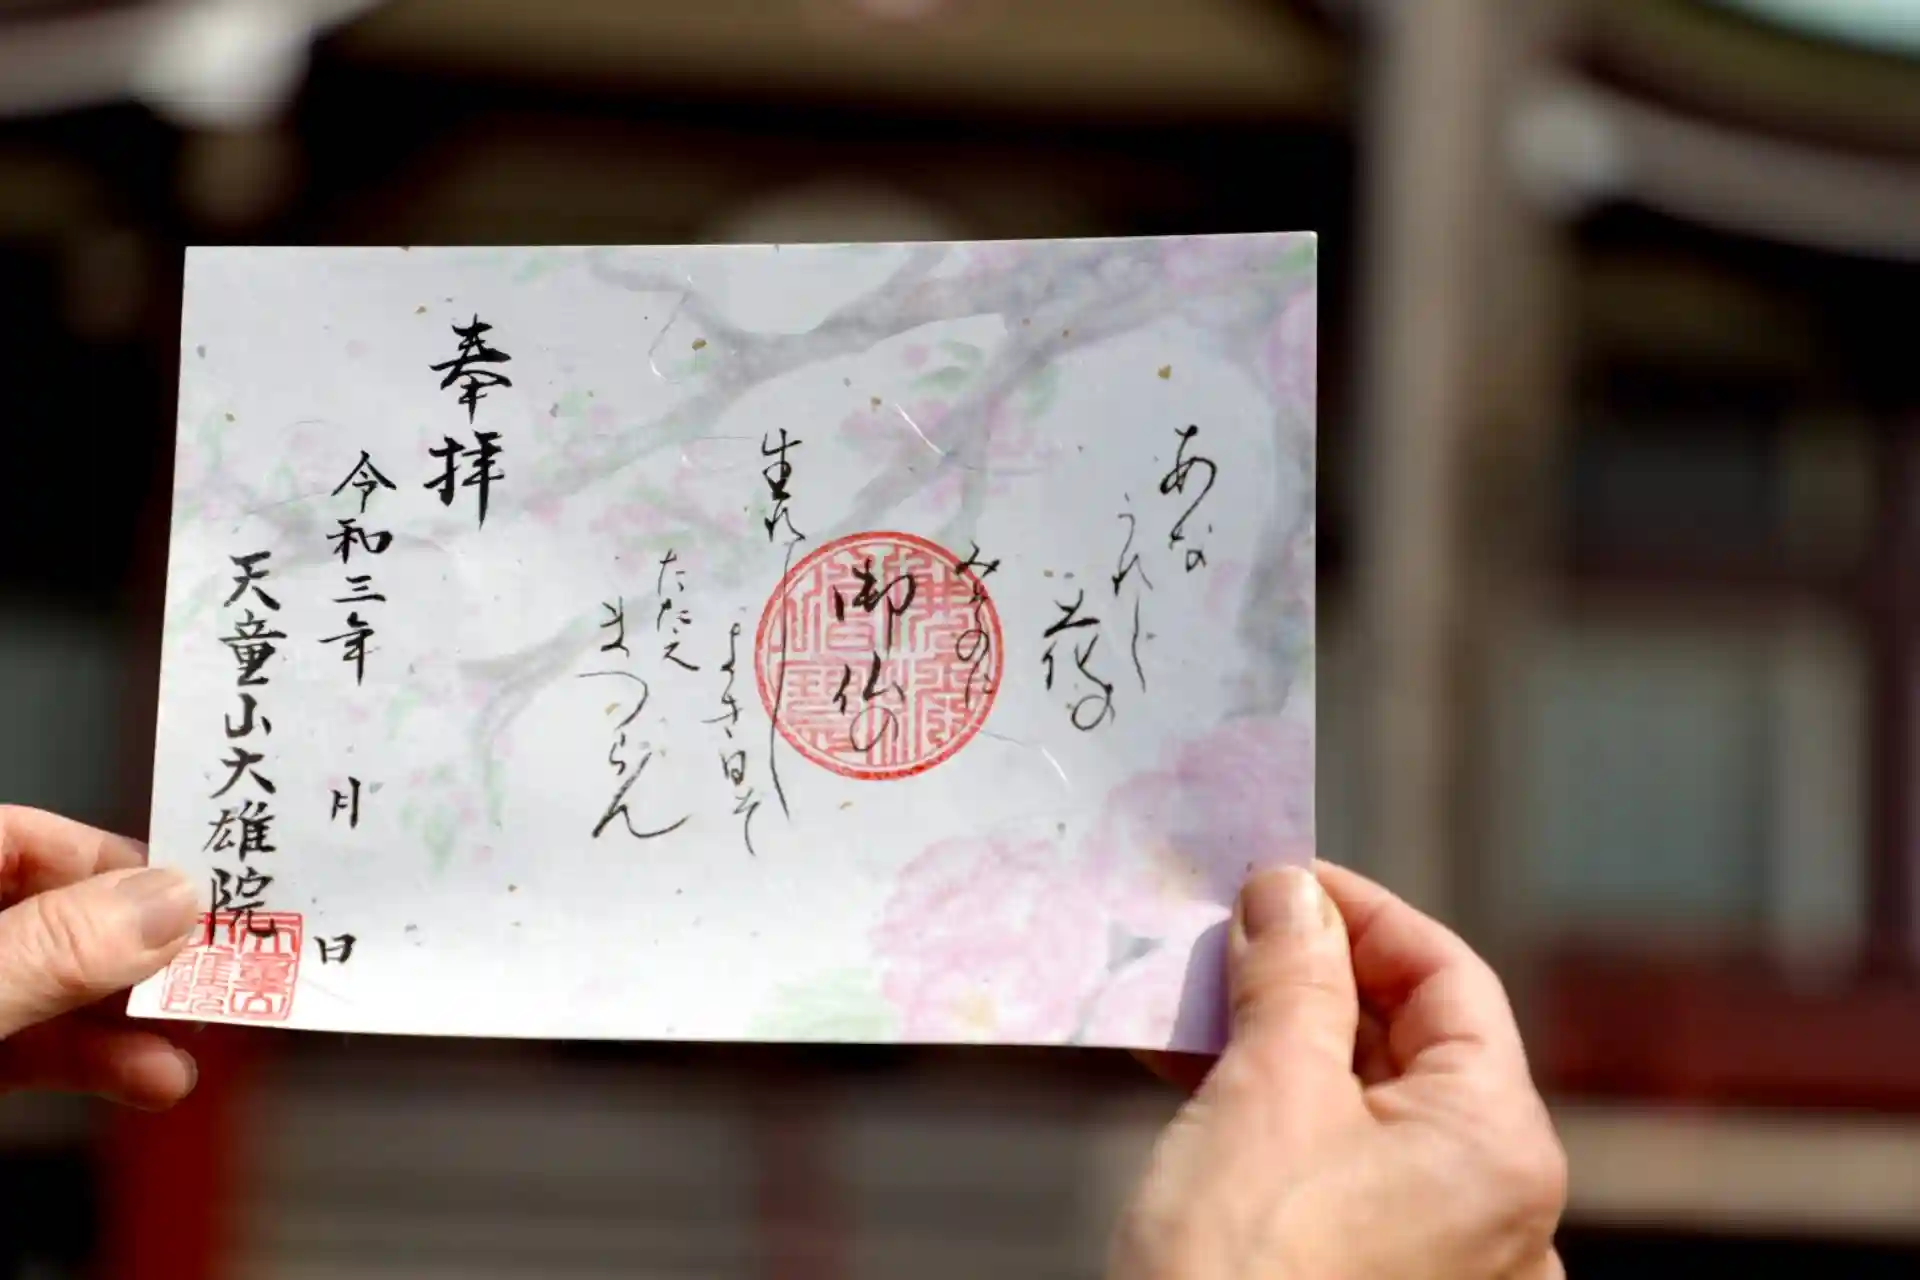 あな
うれし
花の
みそのに
御仏の
生れし
よき日そ
たたえ
まつらん
奉拝
令和三年 月 日
天童山大雄院